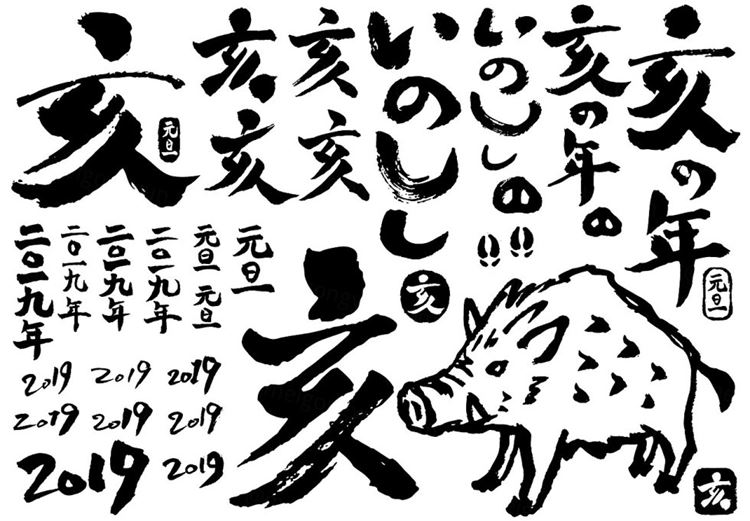 亥
元旦
亥
亥
亥
亥
いのしし
いのしし
亥の年
亥の年
元旦
二〇一九年
二〇一九年
二〇一九年
二〇一九年
元旦
元旦
元旦
亥
亥
2019
2019
2019
2019
2019
2019
2019
2019
亥